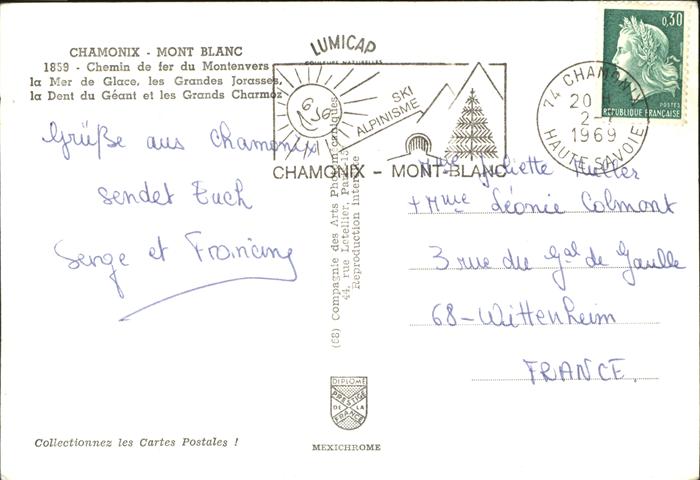 CHAMONIX - MONT BLANC
1859 - Chemin de fer du Montenvers
la Mer de Glace, les Grandes Jorasses,
la Dent du Géant et les Grands Charmoz
LUMICAP
COULEURS NATURELLES
SKI
ALPINISME
CHAMONIX - MONT-BLANC
74 CHAMONIX
20
2-
1969
HAUTE SAVOIE
0,30
POSTES
REPUBLIQUE FRANÇAISE
Grüße aus Chamonix
sendet Euch
Serge et Francine
(68) Compagnie des Arts Photomécaniques
44, rue Letellier, Paris-15
Reproduction interdite
Mme Juliette
+ Mme Léonie Colmont
3 rue du Gal de Gaulle
68-Wittenheim
FRANCE.
DIPLOME
PRESTIGE
DE LA
FRANCE
MEXICHROME
Collectionnez les Cartes Postales !